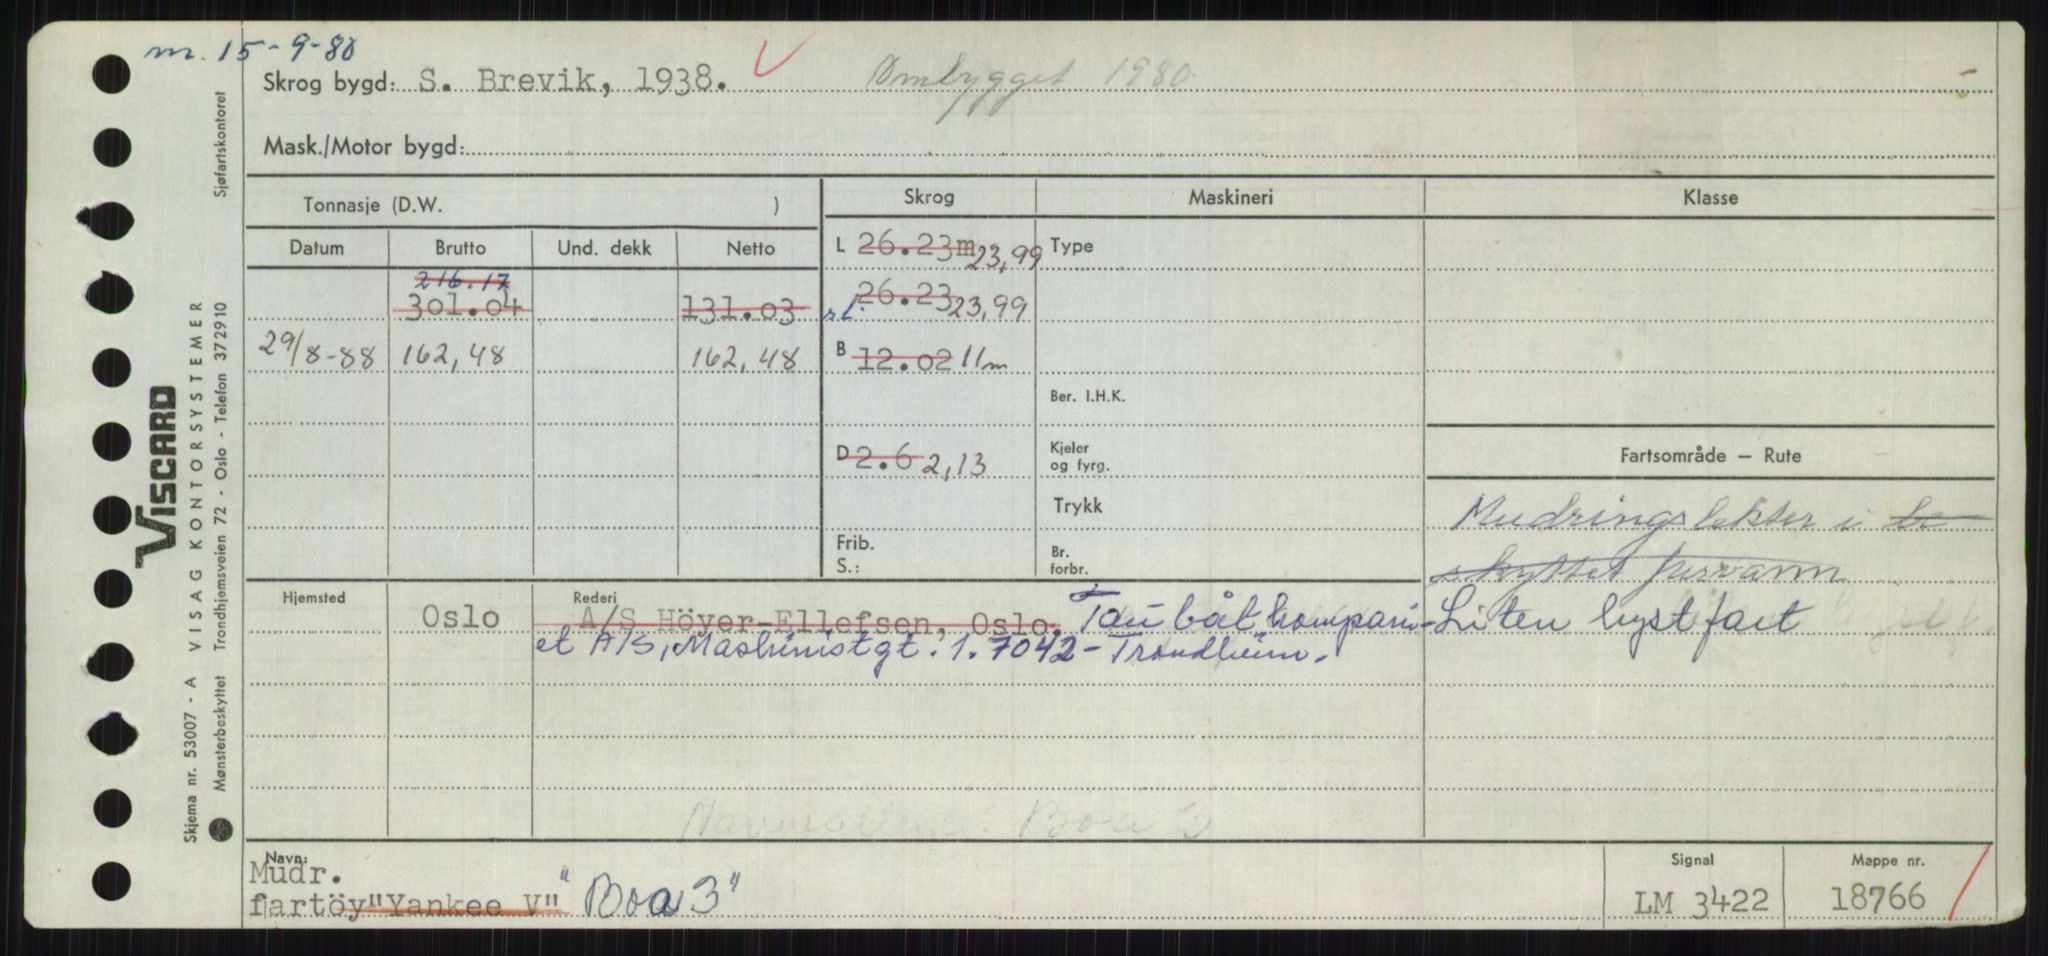 m. 15-9-80
Skrog bygd: S. Brevik, 1938. Ombygget 1980.
Mask./Motor bygd:
Tonnasje (D.W. )
Skrog
Maskineri
Klasse
Datum Brutto Und. dekk Netto
L 26.23m 23,99
Type
216.17
301.04 131.03
sL. 26.23 23,99
29/8-88 162,48 162,48
B 12.02 11m
Ber. I.H.K.
D 2.6 2,13
Kjeler
og fyrg.
Fartsområde — Rute
Trykk
Mudringslekter i be
skyttet farvann
Frib.
S.:
Br.
forbr.
Hjemsted Oslo
Rederi
A/S Höyer-Ellefsen, Oslo. Taubåtkompani-
et A/S, Maskinistgt. 1. 7042 - Trondheim.
Liten kystfart
Boa 3
Navn:
Mudr.
fartöy "Yankee V" "Boa 3"
Signal
LM 3422
Mappe nr.
18766
VISCARD
VISAG KONTORSYSTEMER
Skjema nr. 53007 - A
Mønsterbeskyttet Trondhjemsveien 72 - Oslo - Telefon 372910 Sjøfartskontoret